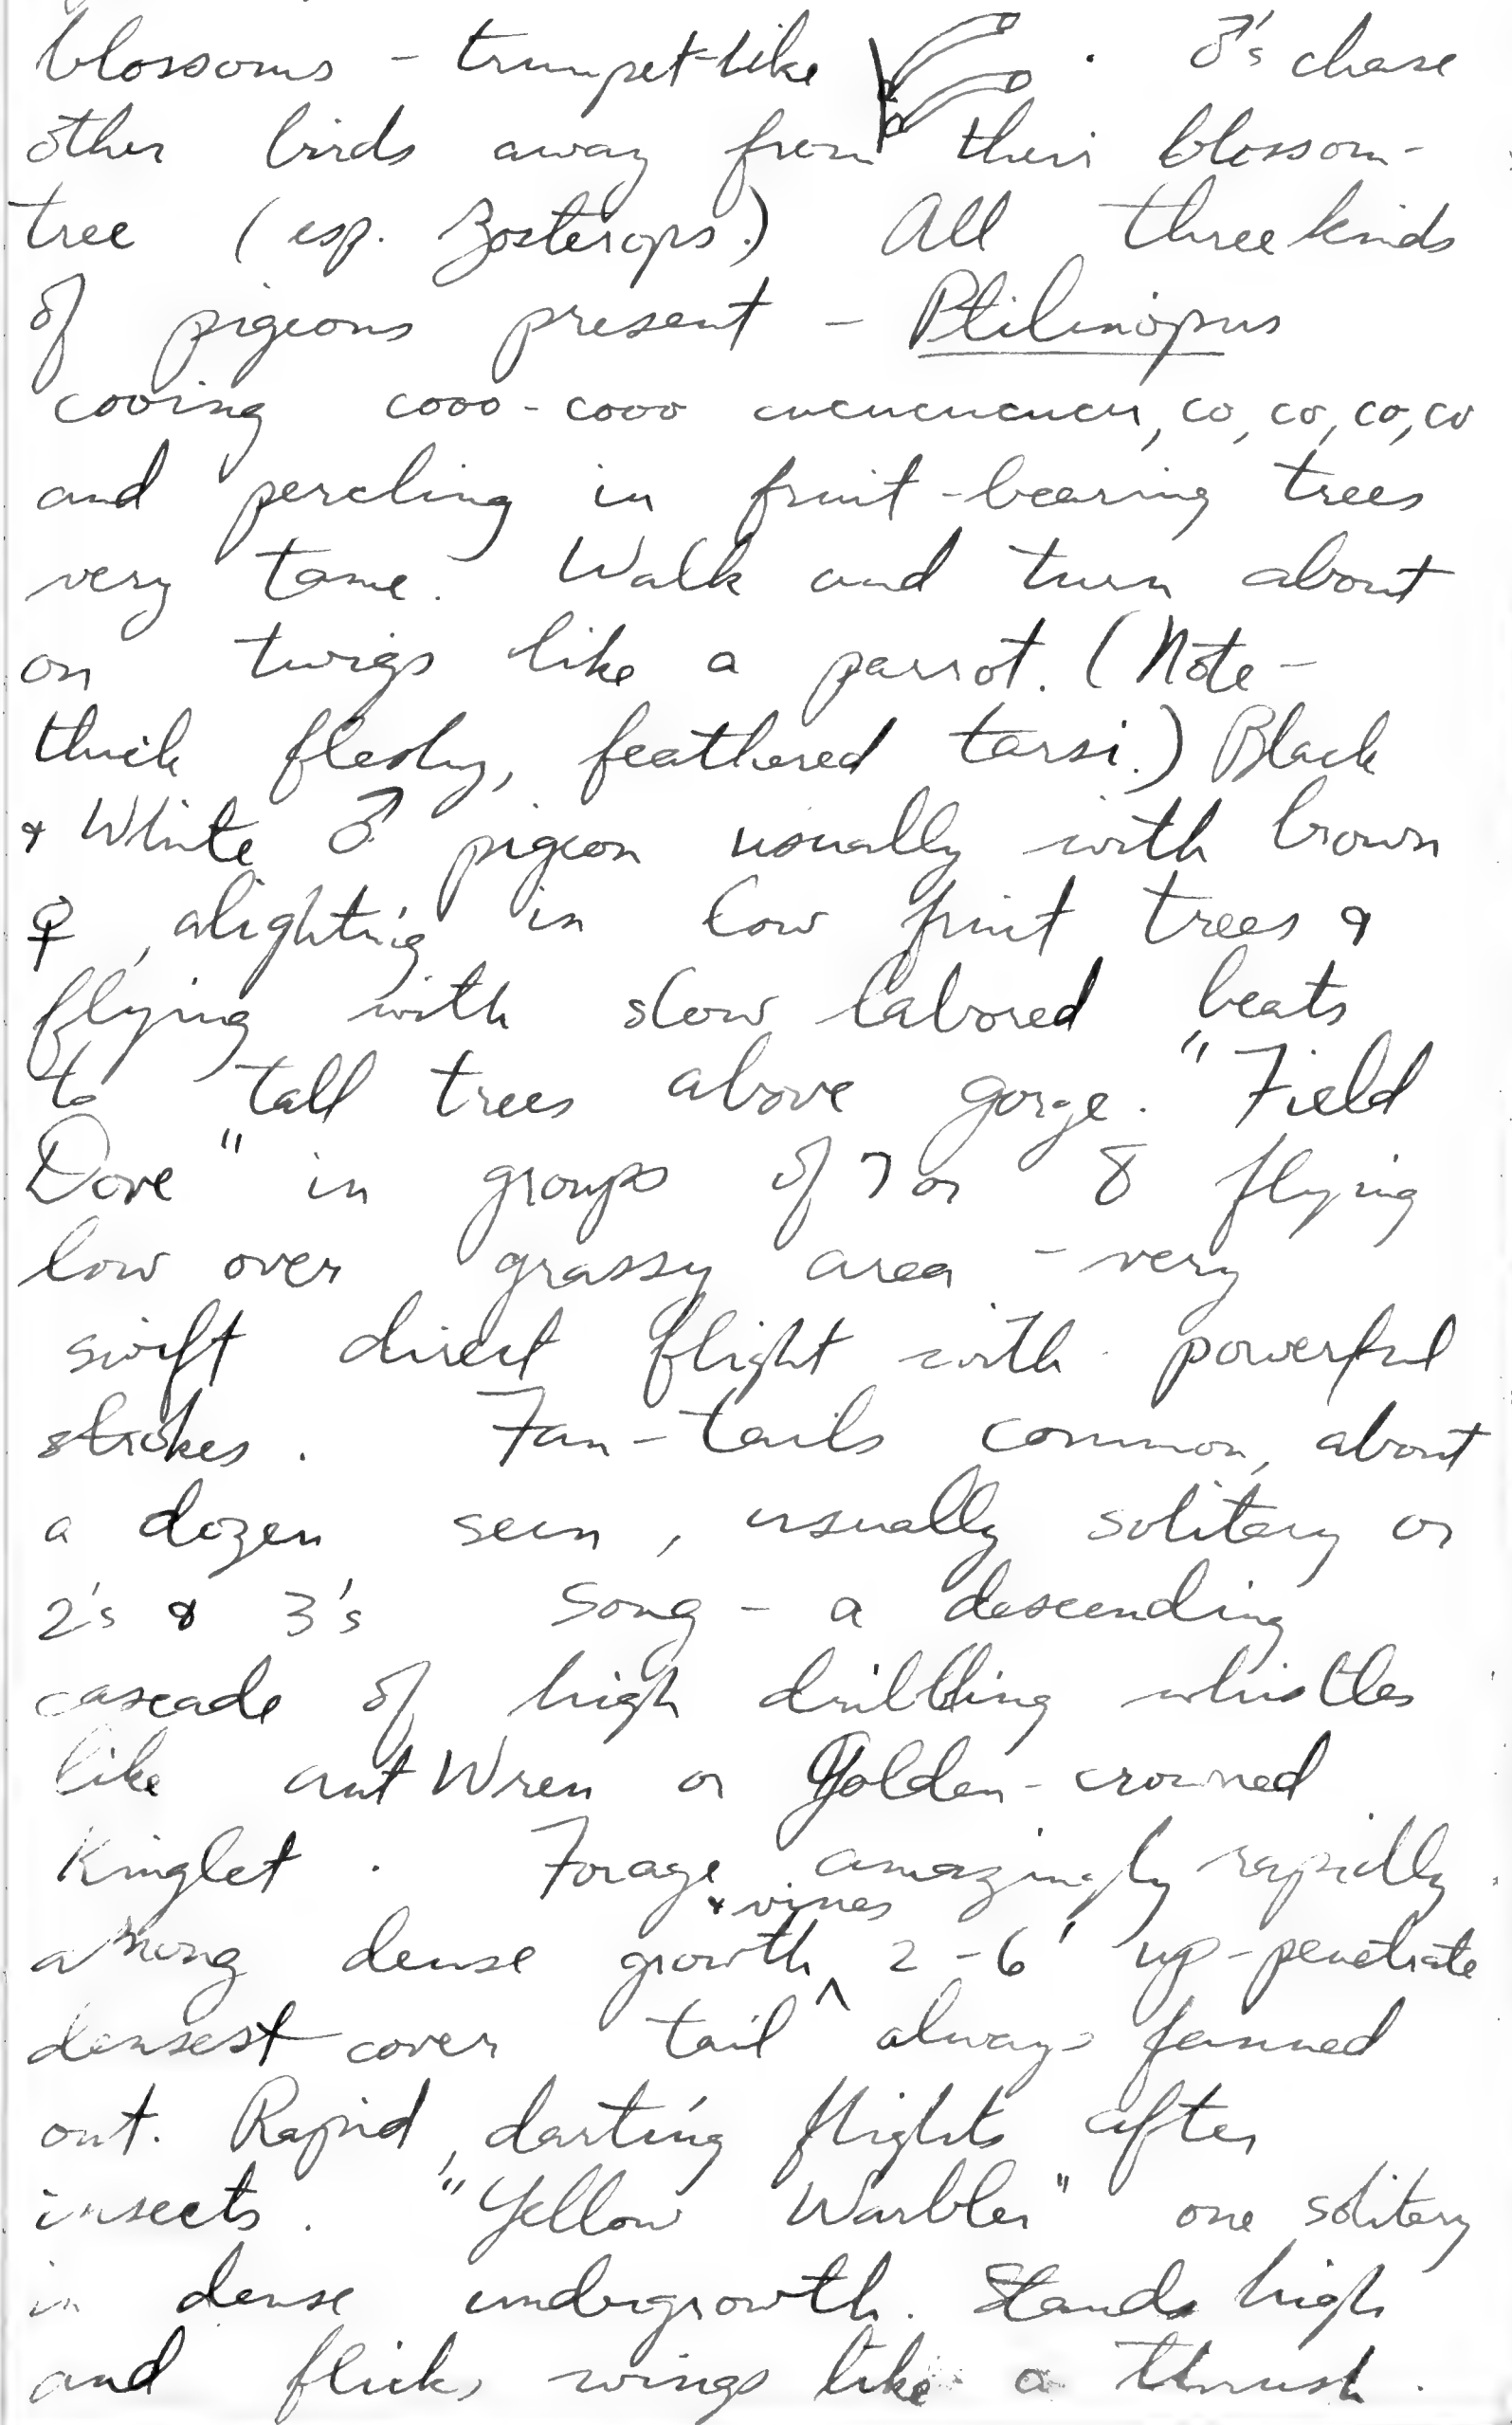 blossoms - trumpet-like . ♂'s chase
other birds away from their blossom-
tree (esp. Zosterops.) All three kinds
of pigeons present - Ptilinopus
cooing cooo-cooo cucucucucu, co, co, co, co
and perching in fruit-bearing trees
very tame. Walk and turn about
on twigs like a parrot. (Note -
thick fleshy, feathered tarsi.) Black
& White ♂ pigeon usually with brown
♀, alighting in low fruit trees &
flying with slow labored beats
to tall trees above gorge. "Field
Dove" in groups of 7 or 8 flying
low over grassy area - very
swift direct flight with powerful
strokes. Fan-tails common, about
a dozen seen, usually solitary or
2's & 3's Song - a descending
cascade of high dribbling whistles
like ant Wren or Golden-crowned
Kinglet. Forage amazingly rapidly
& vines
among dense growth ^ 2-6' up - penetrate
densest cover tail always fanned
out. Rapid, darting flights after
insects. "Yellow Warbler" one solitary
in dense undergrowth. Stands high
and flicks wings like a thrush.